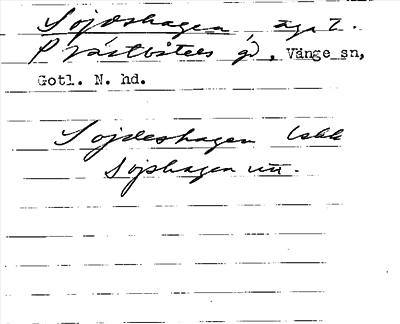 Sojdeshagen, äga 7.
P Västöters gd, Vänge sn,
Gotl. N. hd.
Sojdeshagen
Sojshagen